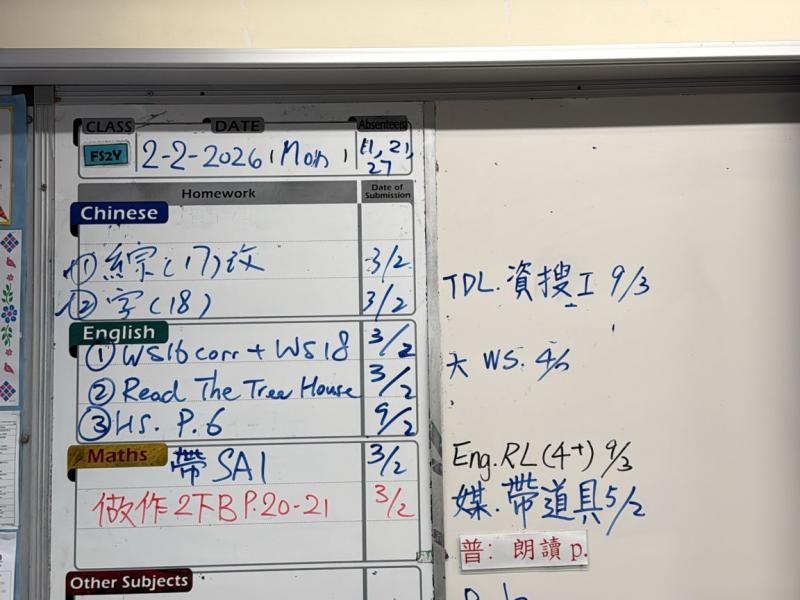 CLASS DATE Absentee(s)
FS2Y 2-2-2026 (Mon) 11, 21, 27
Homework Date of Submission
Chinese
① 綜(17)改 3/2
② 字(18) 3/2
English
① WS16 corr + WS18 3/2
② Read The Tree House 3/2
③ HS. P.6 9/2
Maths
帶 SA1 3/2
做作2下B P.20-21 3/2
Other Subjects
TDL. 資搜工 9/3
大 WS.
Eng. RL (4+) 9/3
媒. 帶道具 5/2
普: 朗讀 p.